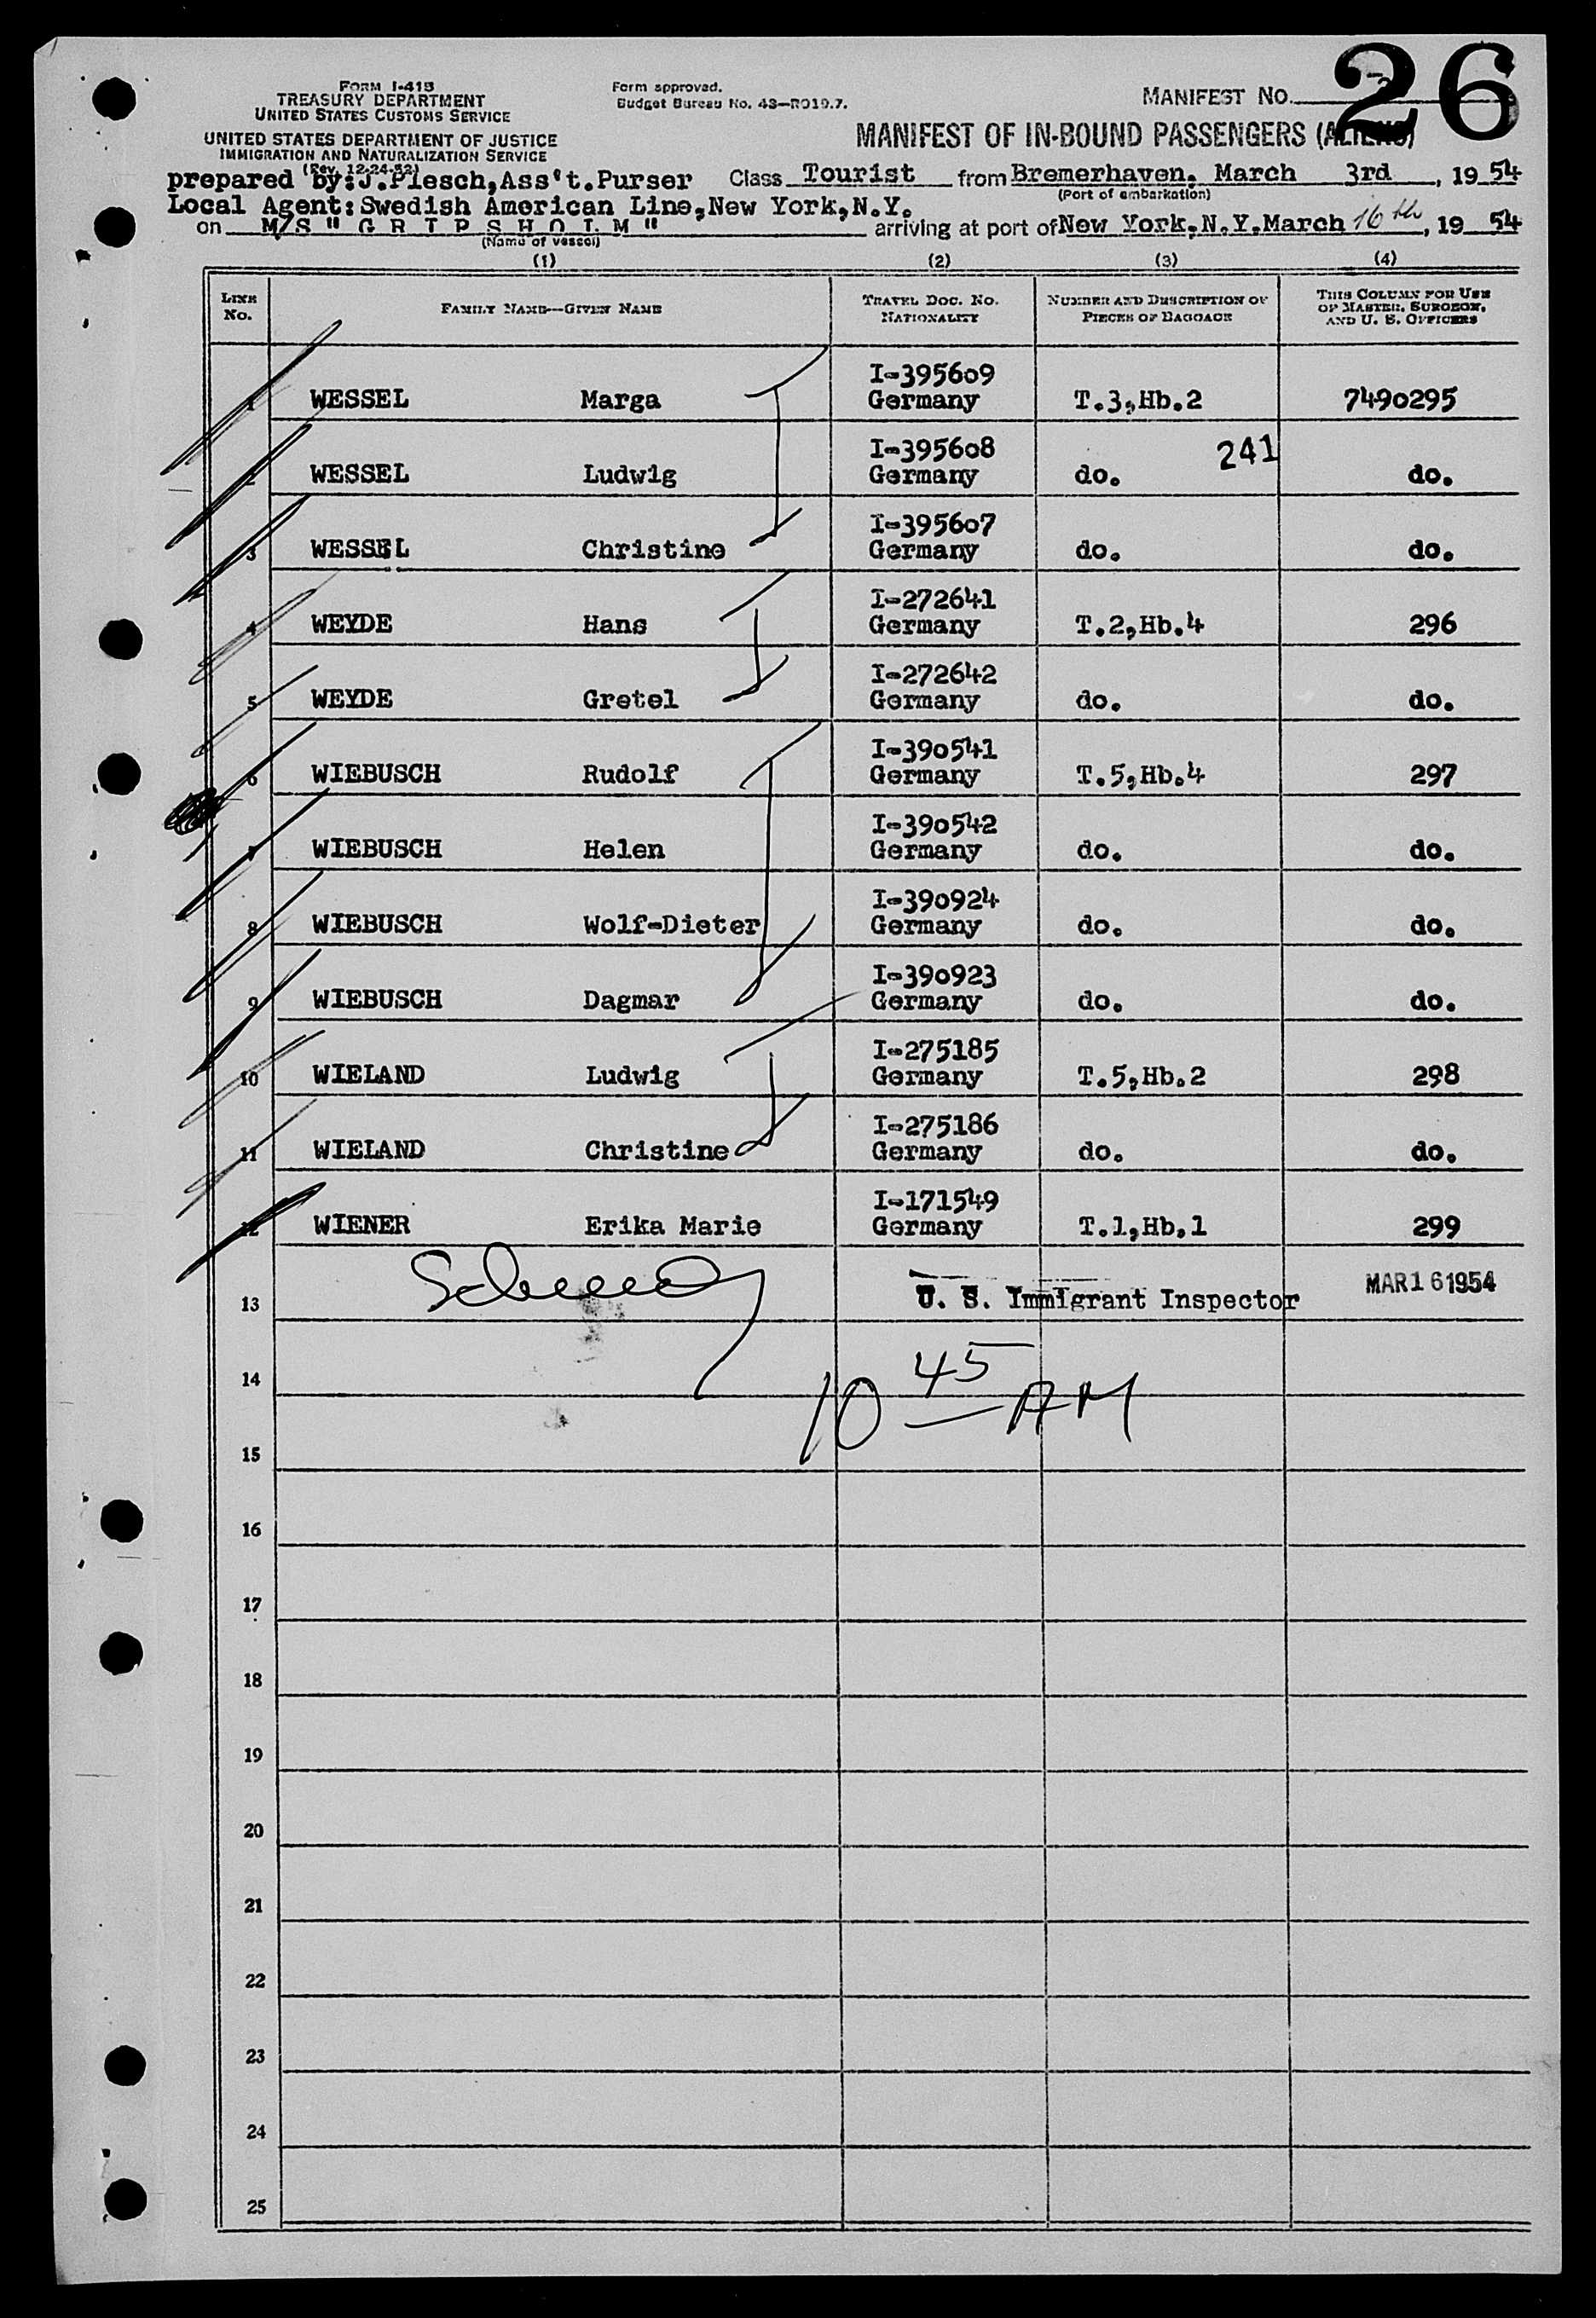 26
FORM I-418
TREASURY DEPARTMENT
UNITED STATES CUSTOMS SERVICE
UNITED STATES DEPARTMENT OF JUSTICE
IMMIGRATION AND NATURALIZATION SERVICE
(Rev. 12-24-52)
Form approved.
Budget Bureau No. 43—R019.7.
MANIFEST NO.
MANIFEST OF IN-BOUND PASSENGERS (ALIENS)
prepared by: J.Plesch,Ass't.Purser Class Tourist from Bremerhaven, March 3rd, 1954
(Port of embarkation)
Local Agent:Swedish American Line,New York,N.Y.
on M/S "GRIPSHOLM" arriving at port of New York,N.Y.March 16th, 1954
(Name of vessel)
(1) (2) (3) (4)
LINE No. FAMILY NAME—GIVEN NAME TRAVEL DOC. NO. NATIONALITY NUMBER AND DESCRIPTION OF PIECES OF BAGGAGE THIS COLUMN FOR USE OF MASTER, SURGEON, AND U. S. OFFICERS
1 WESSEL Marga I-395609 Germany T.3,Hb.2 7490295
241
2 WESSEL Ludwig I-395608 Germany do. do.
3 WESSEL Christine I-395607 Germany do. do.
4 WEYDE Hans I-272641 Germany T.2,Hb.4 296
5 WEYDE Gretel I-272642 Germany do. do.
6 WIEBUSCH Rudolf I-390541 Germany T.5,Hb.4 297
7 WIEBUSCH Helen I-390542 Germany do. do.
8 WIEBUSCH Wolf-Dieter I-390924 Germany do. do.
9 WIEBUSCH Dagmar I-390923 Germany do. do.
10 WIELAND Ludwig I-275185 Germany T.5,Hb.2 298
11 WIELAND Christine I-275186 Germany do. do.
12 WIENER Erika Marie I-171549 Germany T.1,Hb.1 299
13 U. S. Immigrant Inspector MAR 16 1954
14 10 45 AM
15
16
17
18
19
20
21
22
23
24
25